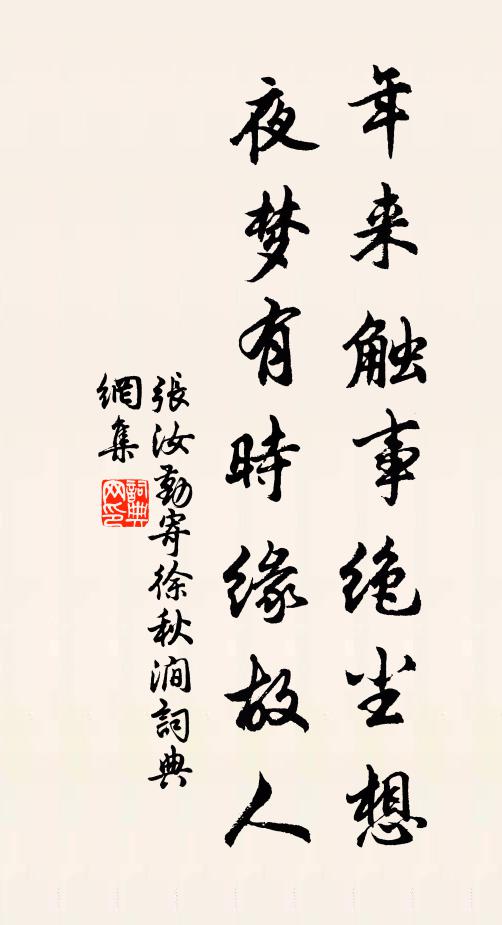 年来触事绝尘想
夜梦有時缘故人
張汝勤寄徐秋澗詞典
網集
詞典
网印